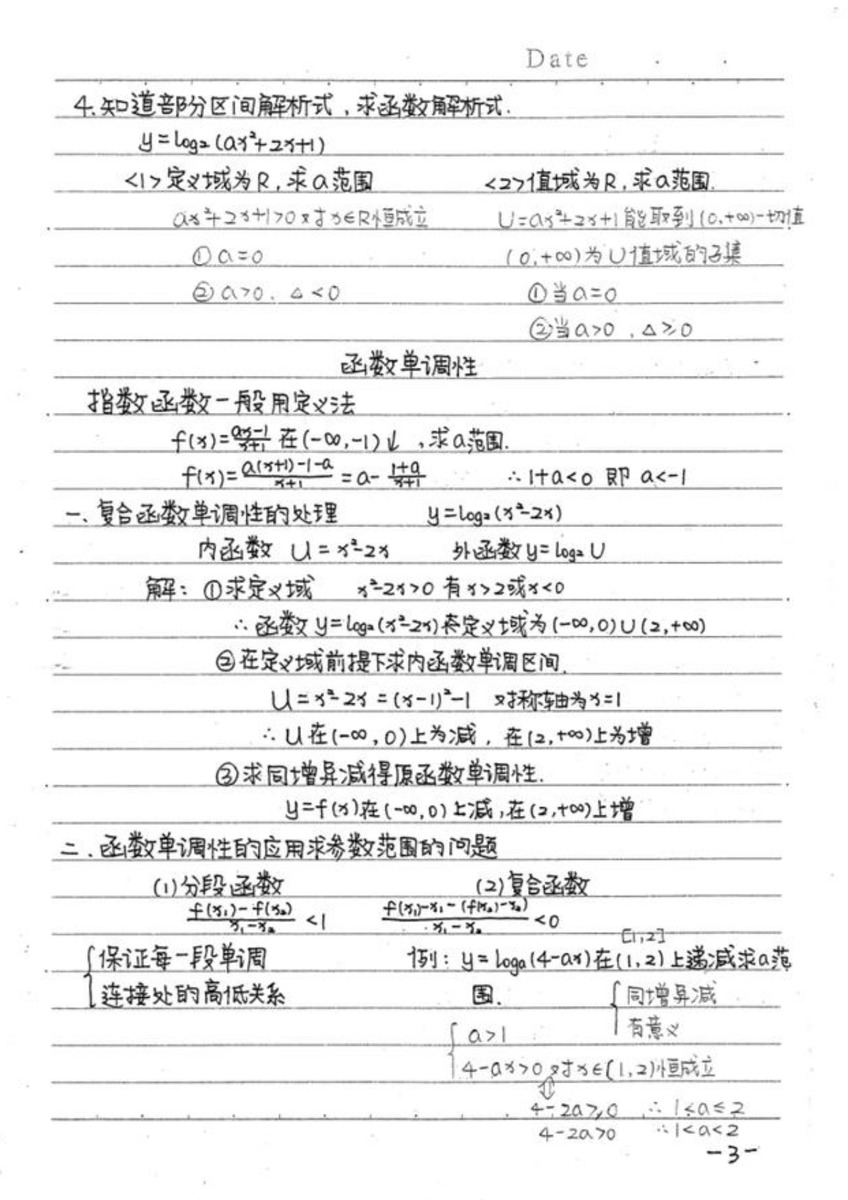 Date
4.知道部分区间解析式,求函数解析式.
y=log₂(ax²+2x+1)
<1>定义域为R,求a范围 <2>值域为R,求a范围.
ax²+2x+1>0对x∈R恒成立 U=ax²+2x+1能取到(0,+∞)一切值
①a=0 (0,+∞)为U值域的子集
②a>0.△<0 ①当a=0
②当a>0,△≥0
函数单调性
指数函数一般用定义法
f(x)=(ax-1)/(x+1) 在(-∞,-1)↓,求a范围.
f(x)=(a(x+1)-1-a)/(x+1) =a-(1+a)/(x+1) ∴1+a<0 即 a<-1
一、复合函数单调性的处理 y=log₂(x²-2x)
内函数 U=x²-2x 外函数y=log₂U
解:①求定义域 x²-2x>0 有x>2或x<0
∴函数y=log₂(x²-2x)定义域为(-∞,0)∪(2,+∞)
②在定义域前提下求内函数单调区间.
U=x²-2x=(x-1)²-1 对称轴为x=1
∴U在(-∞,0)上为减,在(2,+∞)上为增
③求同增异减得原函数单调性.
y=f(x)在(-∞,0)上减,在(2,+∞)上增
二.函数单调性的应用求参数范围的问题
(1)分段函数 (2)复合函数
(f(x₁)-f(x₂))/(x₁-x₂)<1 (f(x₁)-x₁-(f(x₂)-x₂))/(x₁-x₂)<0
[1,2]
{保证每一段单调 例:y=logₐ(4-ax)在(1,2)上递减求a范
连接处的高低关系 围. {同增异减
{a>1 有意义
4-ax>0对x∈(1,2)恒成立
⇕
4-2a≥0 ∴1≤a≤2
4-2a>0 ∴1<a<2
-3-